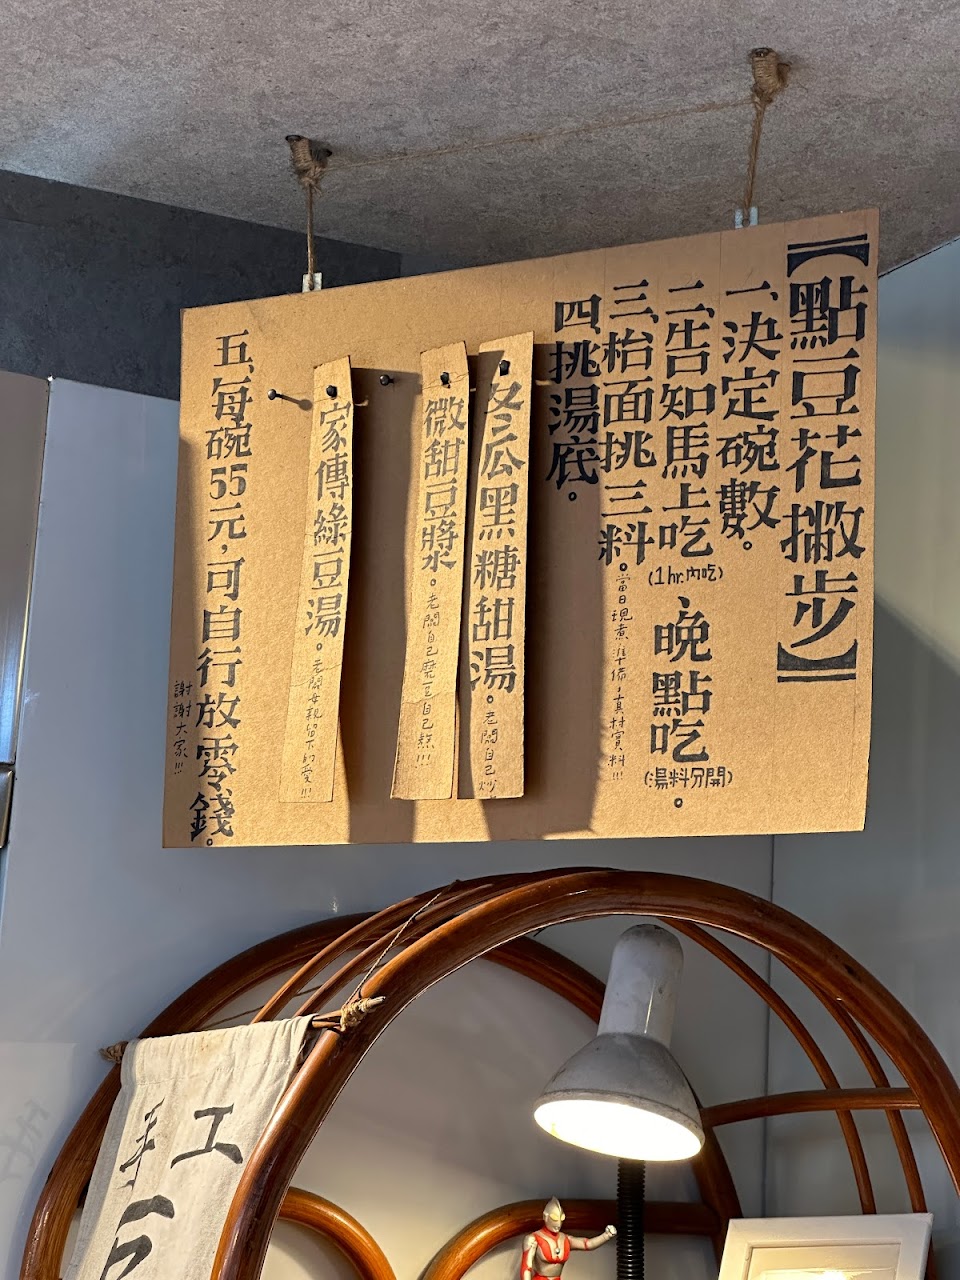 【點豆花撇步】
一、決定碗數。
二、告知馬上吃(1hr.內吃)、晚點吃(湯料分開)。
三、枱面挑三料。當日現煮準備,真材實料!!!
四、挑湯底。
冬瓜黑糖甜湯。老闆自己炒
微甜豆漿。老闆自己磨豆自己熬!!!
家傳綠豆湯。老闆母親留下的愛!!!
五、每碗55元,可自行放零錢。
謝謝大家!!!
手工